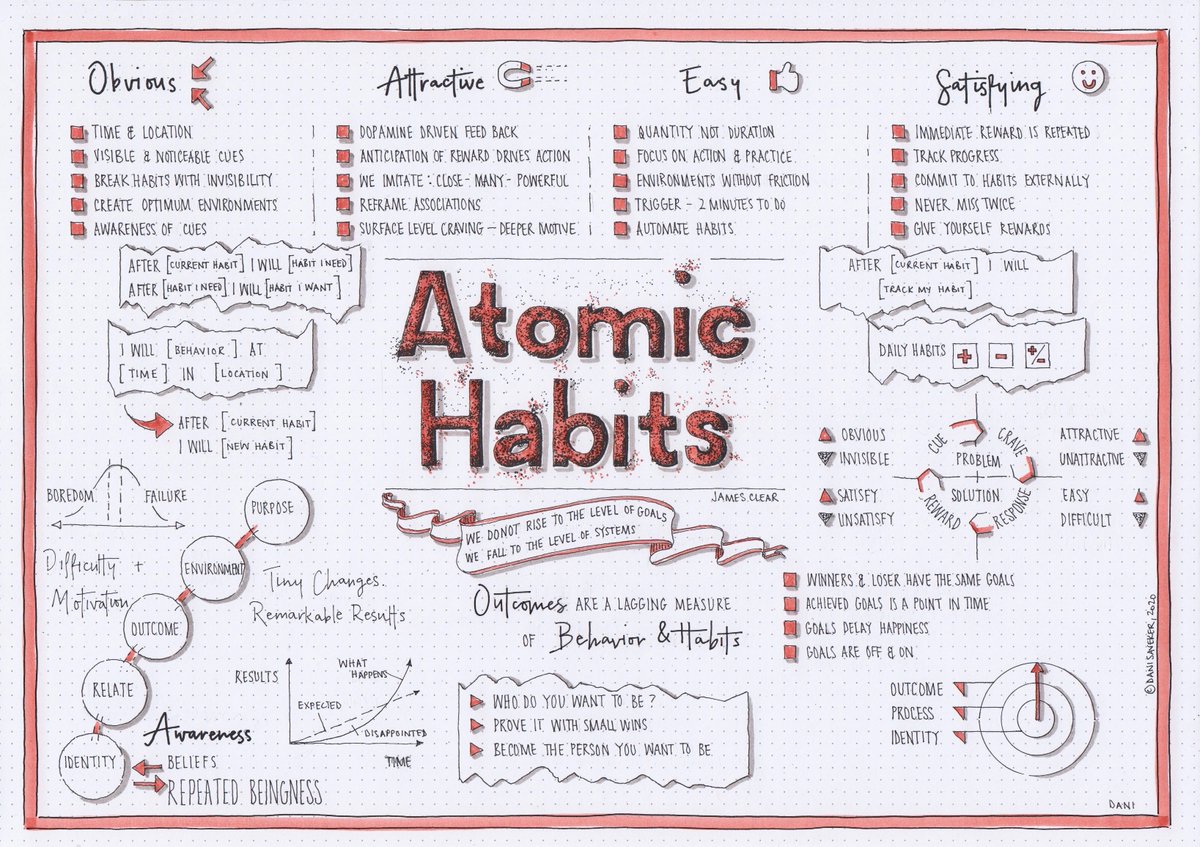 Obvious
TIME & LOCATION
VISIBLE & NOTICEABLE CUES
BREAK HABITS WITH INVISIBILITY
CREATE OPTIMUM ENVIRONMENTS
AWARENESS OF CUES
Attractive
DOPAMINE DRIVEN FEED BACK
ANTICIPATION OF REWARD DRIVES ACTION
WE IMITATE: CLOSE - MANY - POWERFUL
REFRAME ASSOCIATIONS
SURFACE LEVEL CRAVING - DEEPER MOTIVE
Easy
QUANTITY NOT DURATION
FOCUS ON ACTION & PRACTICE
ENVIRONMENTS WITHOUT FRICTION
TRIGGER - 2 MINUTES TO DO
AUTOMATE HABITS
Satisfying
IMMEDIATE REWARD IS REPEATED
TRACK PROGRESS
COMMIT TO HABITS EXTERNALLY
NEVER MISS TWICE
GIVE YOURSELF REWARDS
AFTER [CURRENT HABIT] I WILL [HABIT I NEED]
AFTER [HABIT I NEED] I WILL [HABIT I WANT]
I WILL [BEHAVIOR] AT
[TIME] IN [LOCATION]
AFTER [CURRENT HABIT]
I WILL [NEW HABIT]
Atomic
Habits
JAMES CLEAR
WE DO NOT RISE TO THE LEVEL OF GOALS
WE FALL TO THE LEVEL OF SYSTEMS
AFTER [CURRENT HABIT] I WILL
[TRACK MY HABIT]
DAILY HABITS + - +/-
OBVIOUS
INVISIBLE
SATISFY
UNSATISFY
CUE
CRAVE
PROBLEM
SOLUTION
REWARD
RESPONSE
ATTRACTIVE
UNATTRACTIVE
EASY
DIFFICULT
BOREDOM
FAILURE
Difficulty +
Motivation
PURPOSE
ENVIRONMENT
OUTCOME
RELATE
IDENTITY
Tiny Changes.
Remarkable Results
Awareness
BELIEFS
REPEATED BEINGNESS
RESULTS
WHAT
HAPPENS
EXPECTED
DISAPPOINTED
TIME
Outcomes ARE A LAGGING MEASURE
OF Behavior & Habits
WHO DO YOU WANT TO BE?
PROVE IT WITH SMALL WINS
BECOME THE PERSON YOU WANT TO BE
WINNERS & LOSER HAVE THE SAME GOALS
ACHIEVED GOALS IS A POINT IN TIME
GOALS DELAY HAPPINESS
GOALS ARE OFF & ON
OUTCOME
PROCESS
IDENTITY
©DANI SAVEKER, 2020
DANI